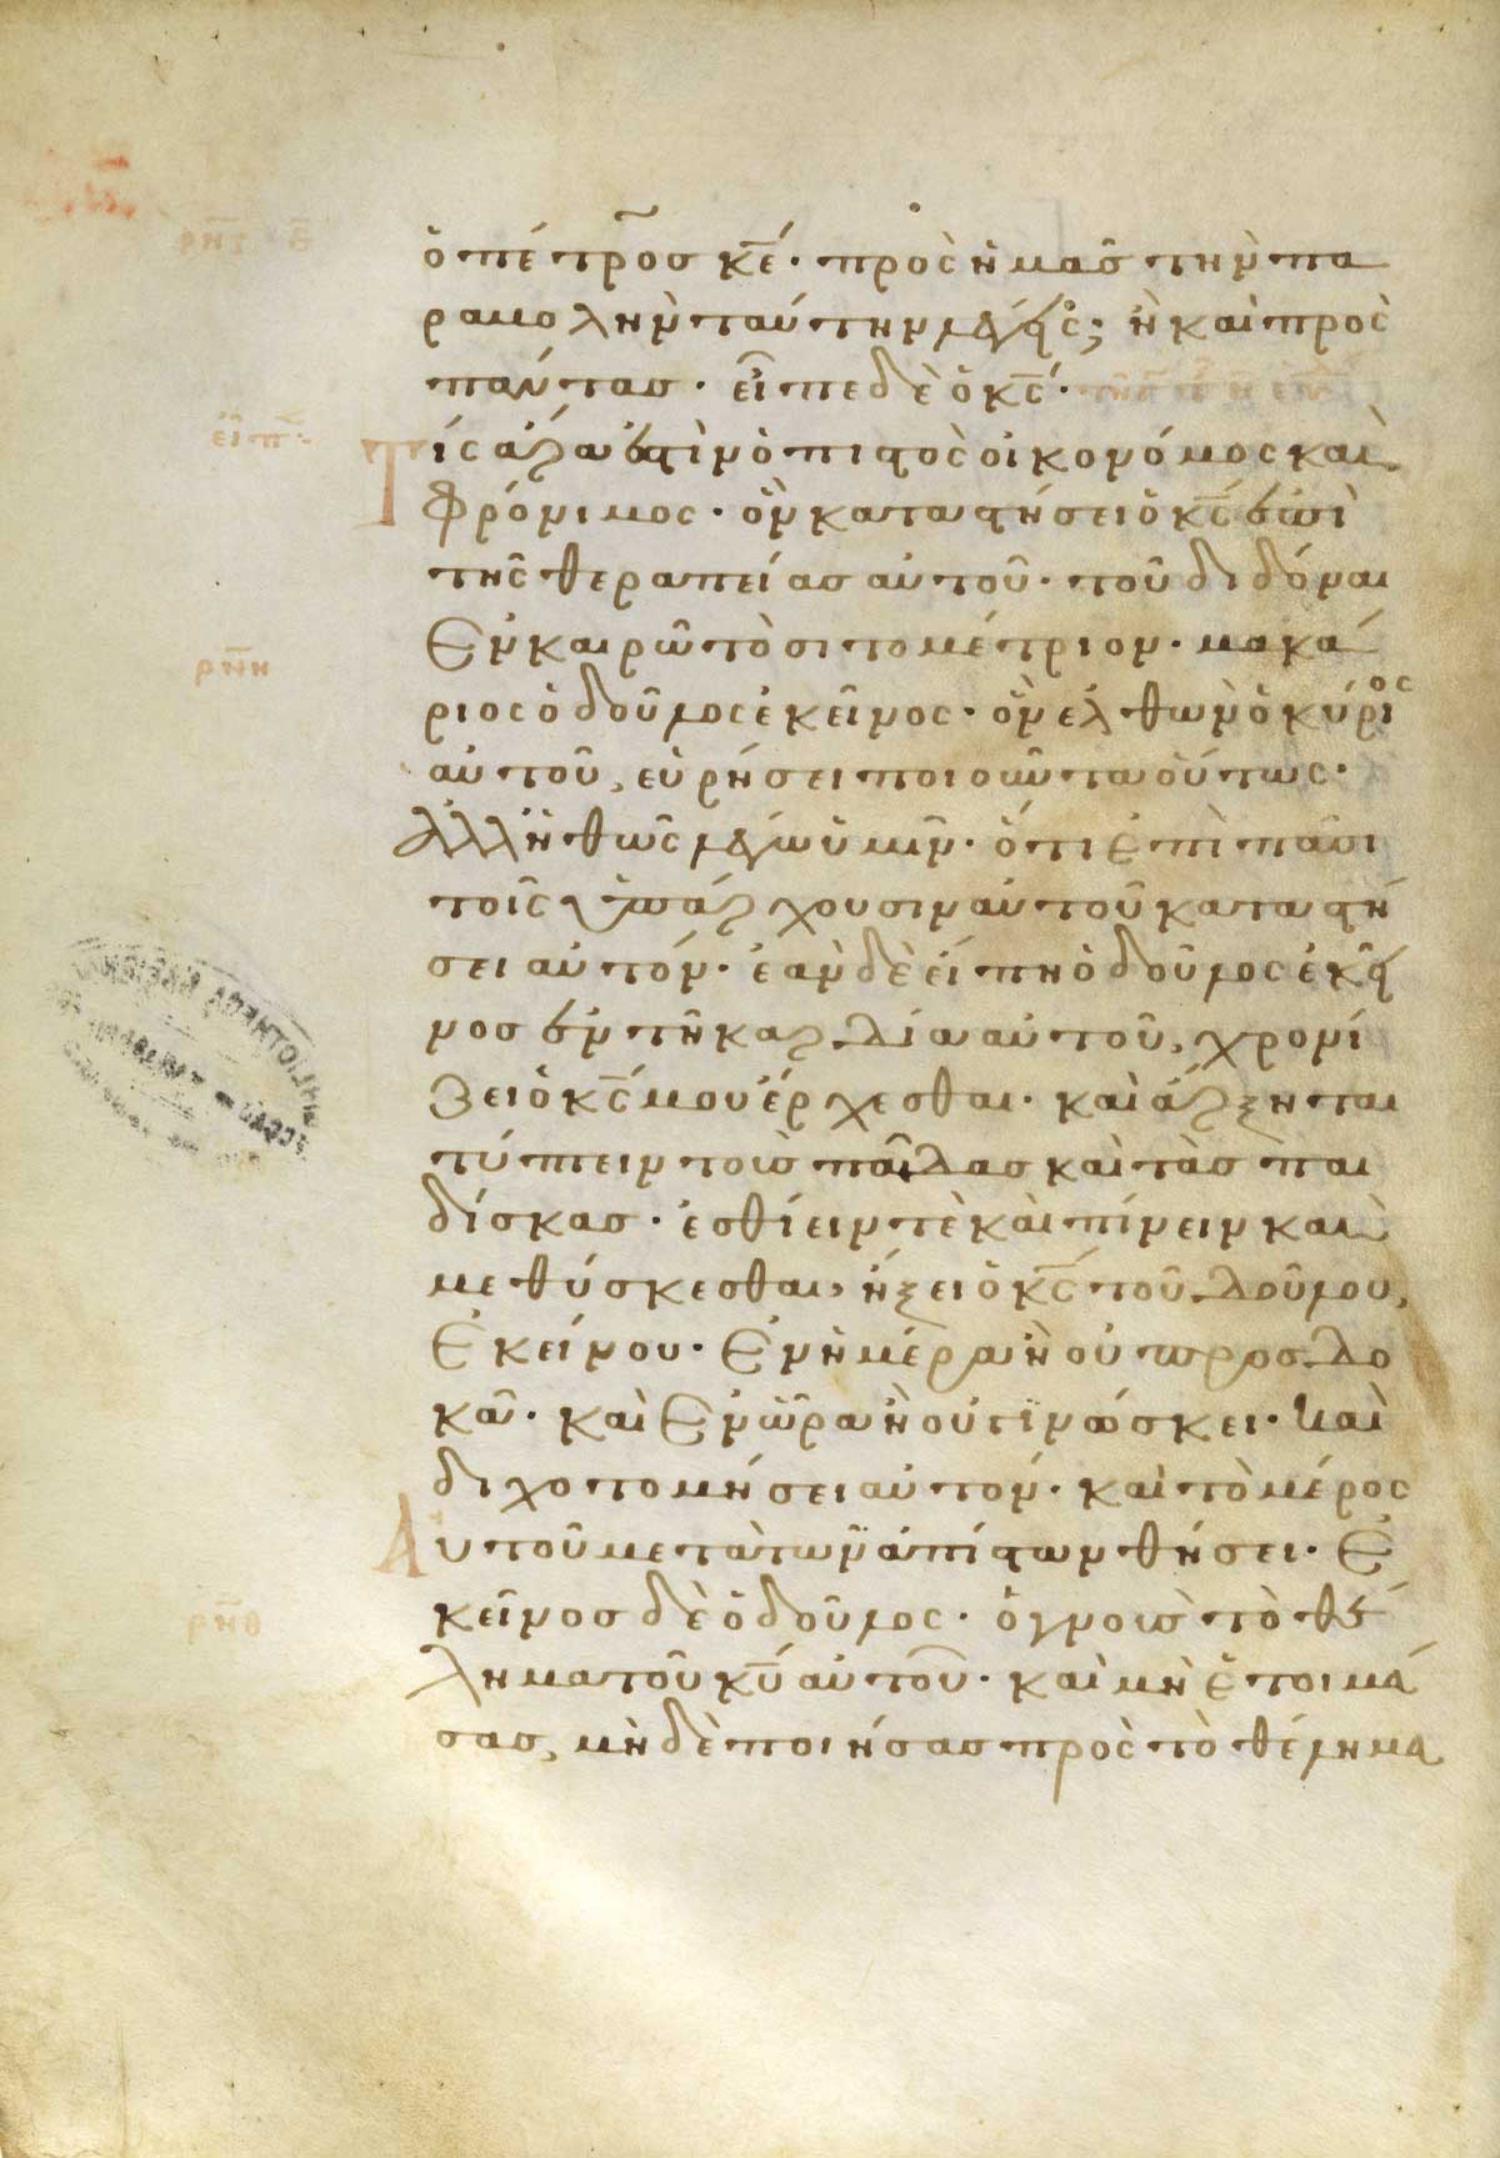 ὁ πέτροσ κ̅ε̅· πρὸς ἡμᾶς τὴν πα
ραβολὴν ταύτην λέγεις; ἢ καὶ πρὸς
πάντασ· εἶπε δὲ ὁ κ̅ς̅·
Τίς ἄρα ἐστὶν ὁ πιστὸς οἰκονόμος καὶ
φρόνιμος· ὃν καταστήσει ὁ κ̅ς̅ ἐπὶ
τῆς θεραπείασ αὐτοῦ· τοῦ διδόναι
ἐν καιρῶ τὸ σιτομέτριον· μακά
ριος ὁ δοῦλος ἐκεῖνος· ὃν ἐλθὼν ὁ κύριος
αὐτοῦ, εὑρήσει ποιοῦντα οὕτως·
ἀλληθῶς λέγω ὑμῖν· ὅτι ἐπὶ πᾶσι
τοῖς ὑπάρχουσιν αὐτοῦ καταστή
σει αὐτόν· ἐὰν δὲ εἴπη ὁ δοῦλος ἐκεῖ
νοσ ἐν τῆ καρδία αὐτοῦ, χρονί
ζει ὁ κ̅ς̅ μου ἔρχεσθαι· καὶ ἄρξηται
τύπτειν τοὺσ παῖδασ καὶ τὰσ παι
δίσκασ· ἐσθίειν τὲ καὶ πίνειν καὶ
μεθύσκεσθαι, ἥξει ὁ κ̅ς̅ τοῦ δούλου,
ἐκείνου· ἐν ἡμέρα ἧ οὐ προσδο
κᾶ· καὶ ἐν ὥρα ἧ οὐ γινώσκει· καὶ
διχοτομήσει αὐτόν· καὶ τὸ μέρος
Αὐτοῦ μετὰ τῶν ἀπίστων θήσει· ἐ
κεῖνοσ δὲ ὁ δοῦλος· ὁ γνοὺσ τὸ θέ
λημα τοῦ κ̅υ̅ αὐτοῦ· καὶ μὴ ἑτοιμά
σασ, μὴ δὲ ποιήσασ πρὸς τὸ θέλημα